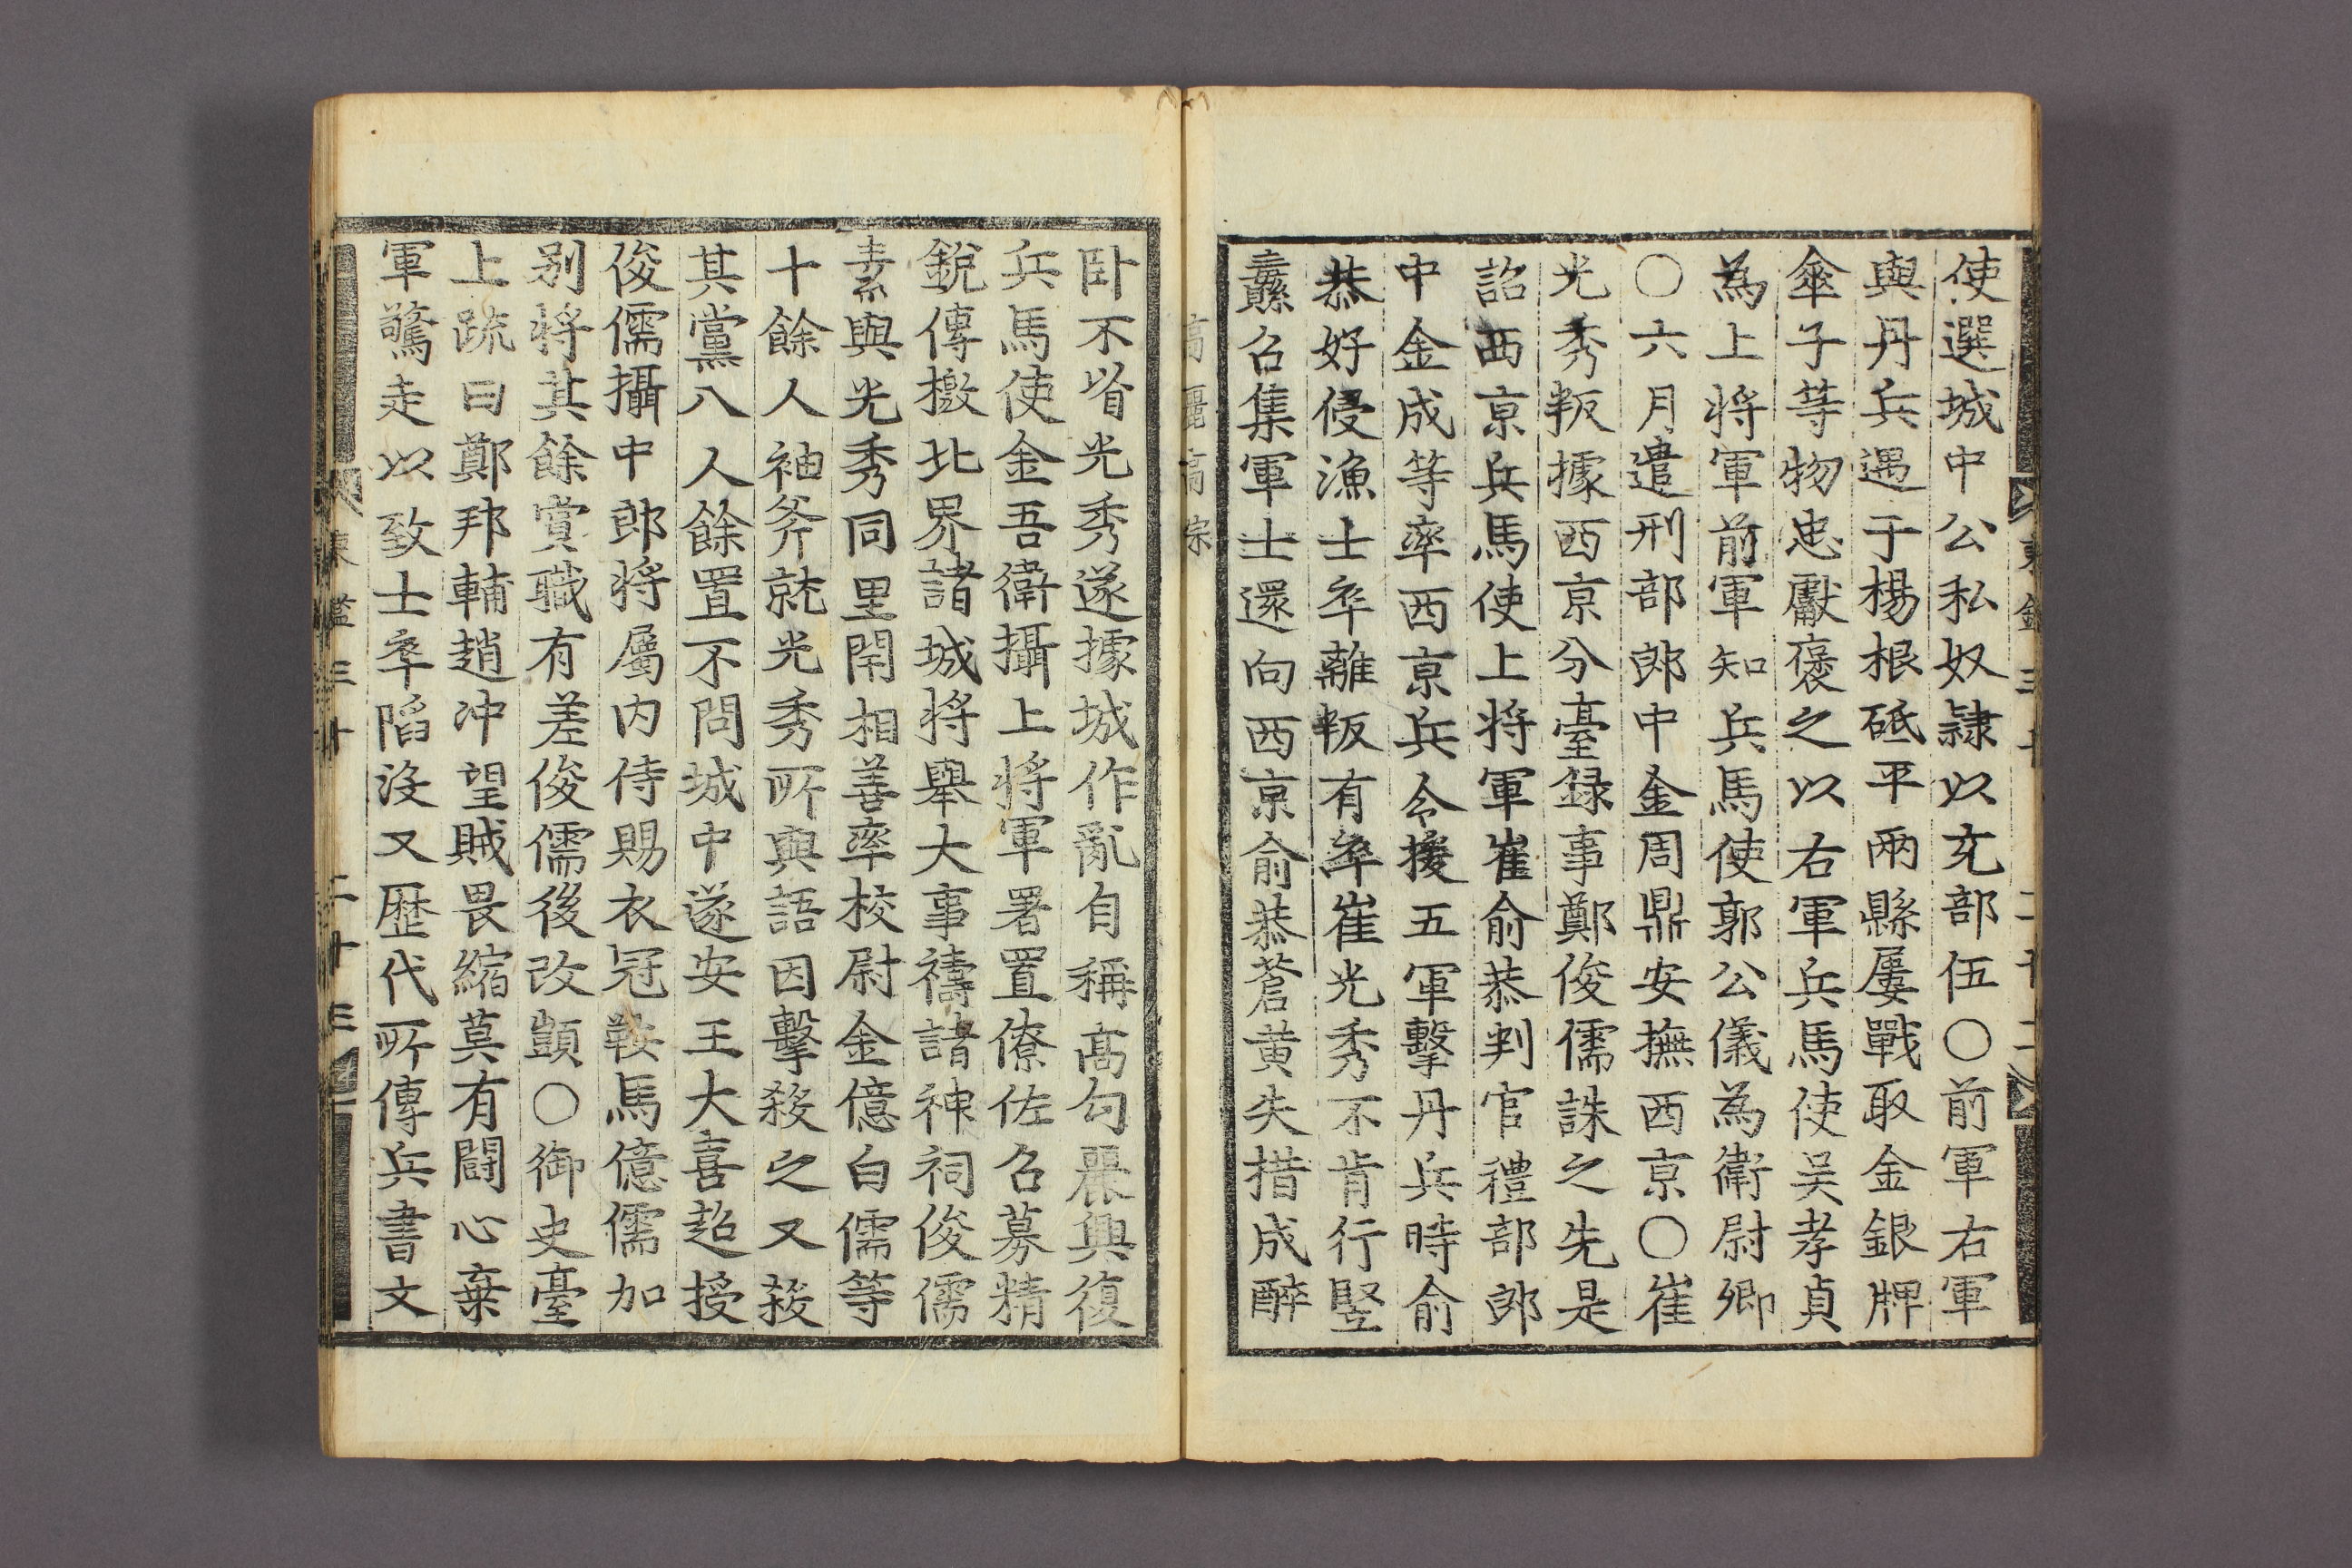 使選城中公私奴隷以充部伍○前軍右軍
與丹兵遇于楊根砥平兩縣屢戰取金銀牌
傘子等物忠獻褒之以右軍兵馬使吴孝貞
為上將軍前軍知兵馬使郭公儀為衛尉卿
○六月遣刑部郎中金周鼎安撫西京○崔
光秀叛據西京分臺録事鄭俊儒誅之先是
詔西京兵馬使上將軍崔俞恭判官禮部郎
中金成等率西京兵令援五軍擊丹兵時俞
恭好侵漁士卒離叛有卒崔光秀不肯行竪
纛召集軍士還向西京俞恭蒼黄失措成醉
高麗高宗
卧不省光秀遂據城作亂自稱高勾麗興復
兵馬使金吾衛攝上將軍署置僚佐召募精
銳傳檄北界諸城將舉大事禱諸神祠俊儒
素與光秀同里閈相善率校尉金億白儒等
十餘人袖斧就光秀所與語因擊殺之又殺
其黨八人餘置不問城中遂安王大喜超授
俊儒攝中郎將屬内侍賜衣冠鞍馬億儒加
别將其餘賞職有差俊儒後改顗○御史臺
上䟽曰鄭邦輔趙冲望賊畏縮莫有鬪心棄
軍驚走以致士卒陷没又歷代所傳兵書文
東鑑三十 二十三